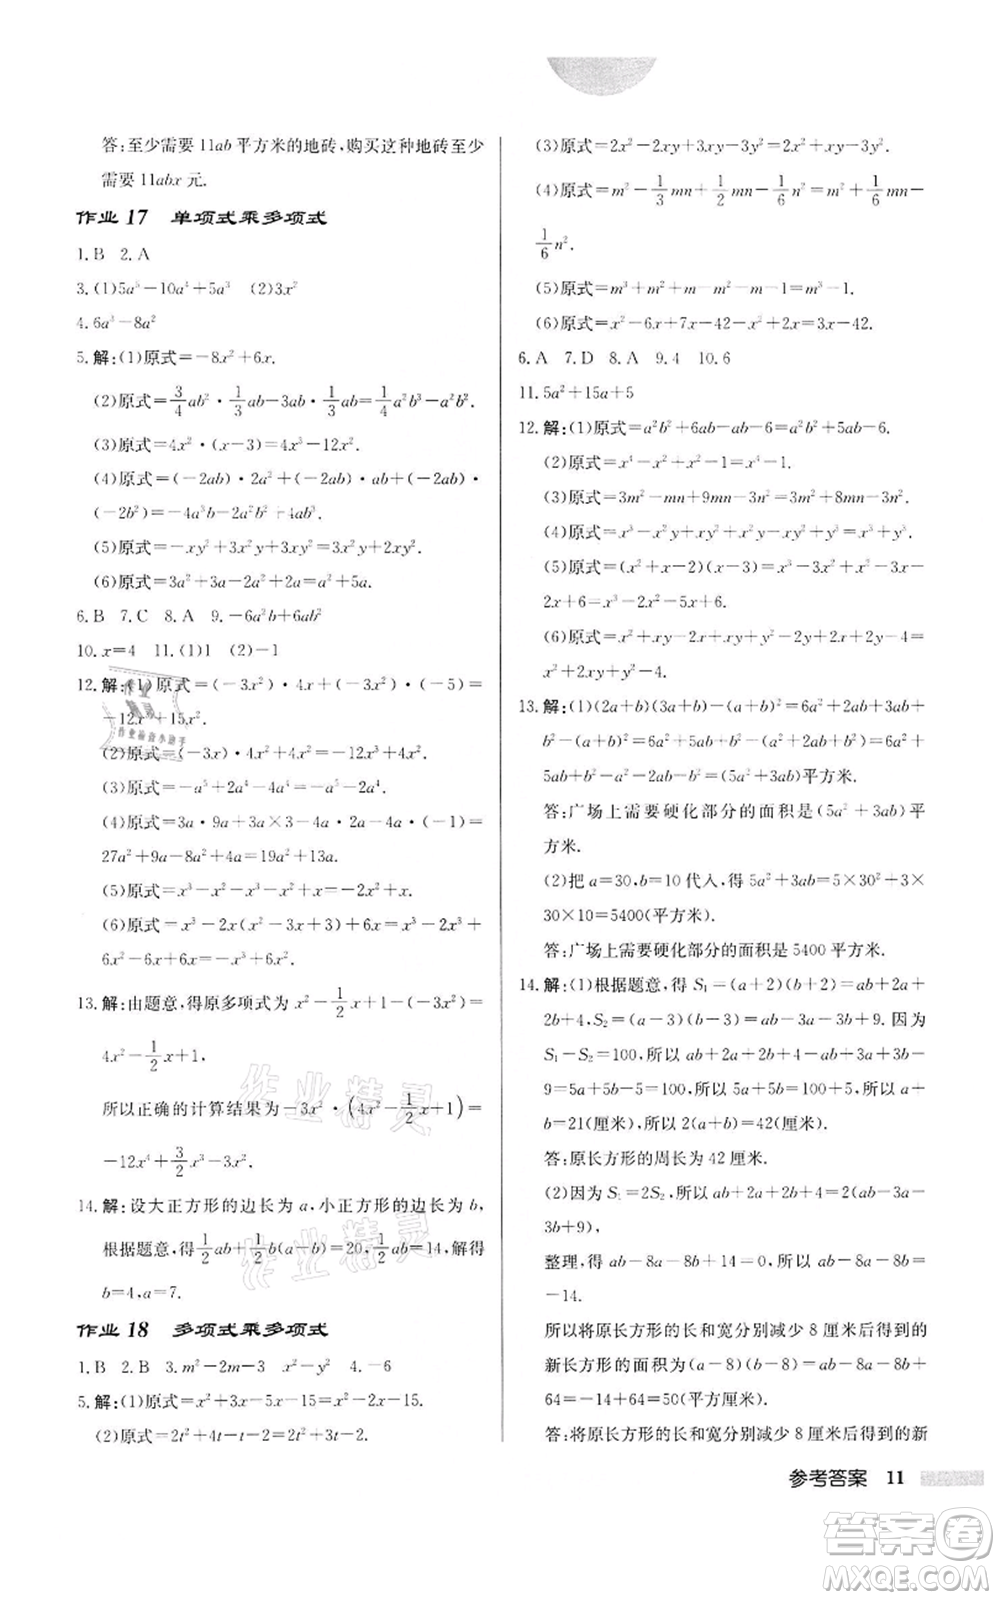 答:至少需要 11ab 平方米的地砖,购买这种地砖至少
需要 11abx 元.
作业 17 单项式乘多项式
1. B 2. A
3. (1)5a⁵-10a⁴+5a³ (2)3x²
4. 6a³-8a²
5. 解:(1)原式=-8x²+6x.
(2)原式=3/4ab²·1/3ab-3ab·1/3ab=1/4a²b³-a²b².
(3)原式=4x²-(-x²)-1=5x²-1.
(4)原式=(-2ab)·2a²+(-2ab)·ab+(-2ab)·
(-2b²)=-4a³b-2a²b²+4ab³.
(5)原式=-xy²+3x²y+3xy²=3x²y+2xy².
(6)原式=3a²+3a-2a²+2a=a²+5a.
6. B 7. C 8. A 9. -6a²b+6ab²
10. x=4 11. (1)1 (2)-1
12. 解:(1)原式=(-3x²)·4x+(-3x²)·(-5)=
-12x³+15x².
作业检查小助手
(3)原式=-a⁵+2a⁴-4a³-a⁵=2a⁴-4a³.
(4)原式=3a·9a+3a×3-4a·2a-4a·(-1)=
27a²+9a-8a²+4a=19a²+13a.
(5)原式=x³-x²-x³-x²+x=-2x²+x.
(6)原式=x³-2x(x²-3x-3)=x³-2x³+6x²+
6x=-x³+6x²+6x.
13. 解:由题意,得原多项式为 x²-1/2x+1-(-3x²)=
4x²-1/2x+1,
所以正确的计算结果为-3x²·(4x²-1/2x+1)=
-12x⁴+3/2x³-3x².
14. 解:设大正方形的边长为 a,小正方形的边长为 b,
根据题意,得1/2ab+1/2b(a-b)=20,1/2ab=14,解得
b=4,a=7.
作业 18 多项式乘多项式
1. B 2. B 3. m²-2m-3 x²-y² 4. -6
5. 解:(1)原式=x²+3x-5x-15=x²-2x-15.
(2)原式=2t²+4t-t-2=2t²+3t-2.
(3)原式=2x²-2xy+3xy-3y²=2x²+xy-3y².
(4)原式=m²-1/3mn+1/2mn-1/6n²=m²+1/6mn-
1/6n².
(5)原式=m³+m²+m-m²-m-1=m³-1.
(6)原式=x²-6x+7x-42=x²+x-42.
6. A 7. D 8. A 9. 4 10. 6
11. 5a²+15a+5
12. 解:(1)原式=a²b²+6ab-ab-6=a²b²+5ab-6.
(2)原式=x⁴-x²+x²-1=x⁴-1.
(3)原式=3m²-mn+9mn-3n²=3m²+8mn-3n².
(4)原式=x³-x²y+xy²+x²y-xy²+y³=x³+y³.
(5)原式=(x²-x+2x-2)(x-3)=x³-3x²+x²-3x-
2x+6=x³-2x²-5x+6.
(6)原式=x²-xy+2x+xy-y²+2y-2x+2y-4
=x²-y²+4y-4.
13. 解:(1)(2a+b)(3a+b)-(a+b)²=6a²+5ab+
b²-(a+b)²=6a²+5ab+b²-a²-2ab-b²=5a²+3ab,
答:广场上需要硬化部分的面积是(5a²+3ab)平
方米.
(2)把 a=30,b=10 代入,得 5a²+3ab=5×30²+3×
30×10=5400(平方米).
答:广场上需要硬化部分的面积是 5400 平方米.
14. 解:(1)根据题意,得 S₁=(a+2)(b+2)=ab+2a+
2b+4,S₂=(a-3)(b-3)=ab-3a-3b+9. 因为
S₁-S₂=100,所以 ab+2a+2b+4-ab+3a+3b-
9=5a+5b-5=100,所以 5a+5b=105,所以 a+
b=21(厘米),所以 2(a+b)=42(厘米).
答:原长方形的周长为 42 厘米.
(2)因为 S₁=2S₂,所以 ab+2a+2b+4=2(ab-3a-
3b+9),
整理,得 ab-8a-8b=-14. 所以 ab-8a-8b=
-14.
所以将原长方形的长和宽分别减少 8 厘米后得到的
新长方形的面积为(a-8)(b-8)=ab-8a-8b+
64=-14+64=50(平方厘米).
答:将原长方形的长和宽分别减少 8 厘米后得到的新
参考答案 11
作业精灵
作业精灵
答案卷
MXQE.COM